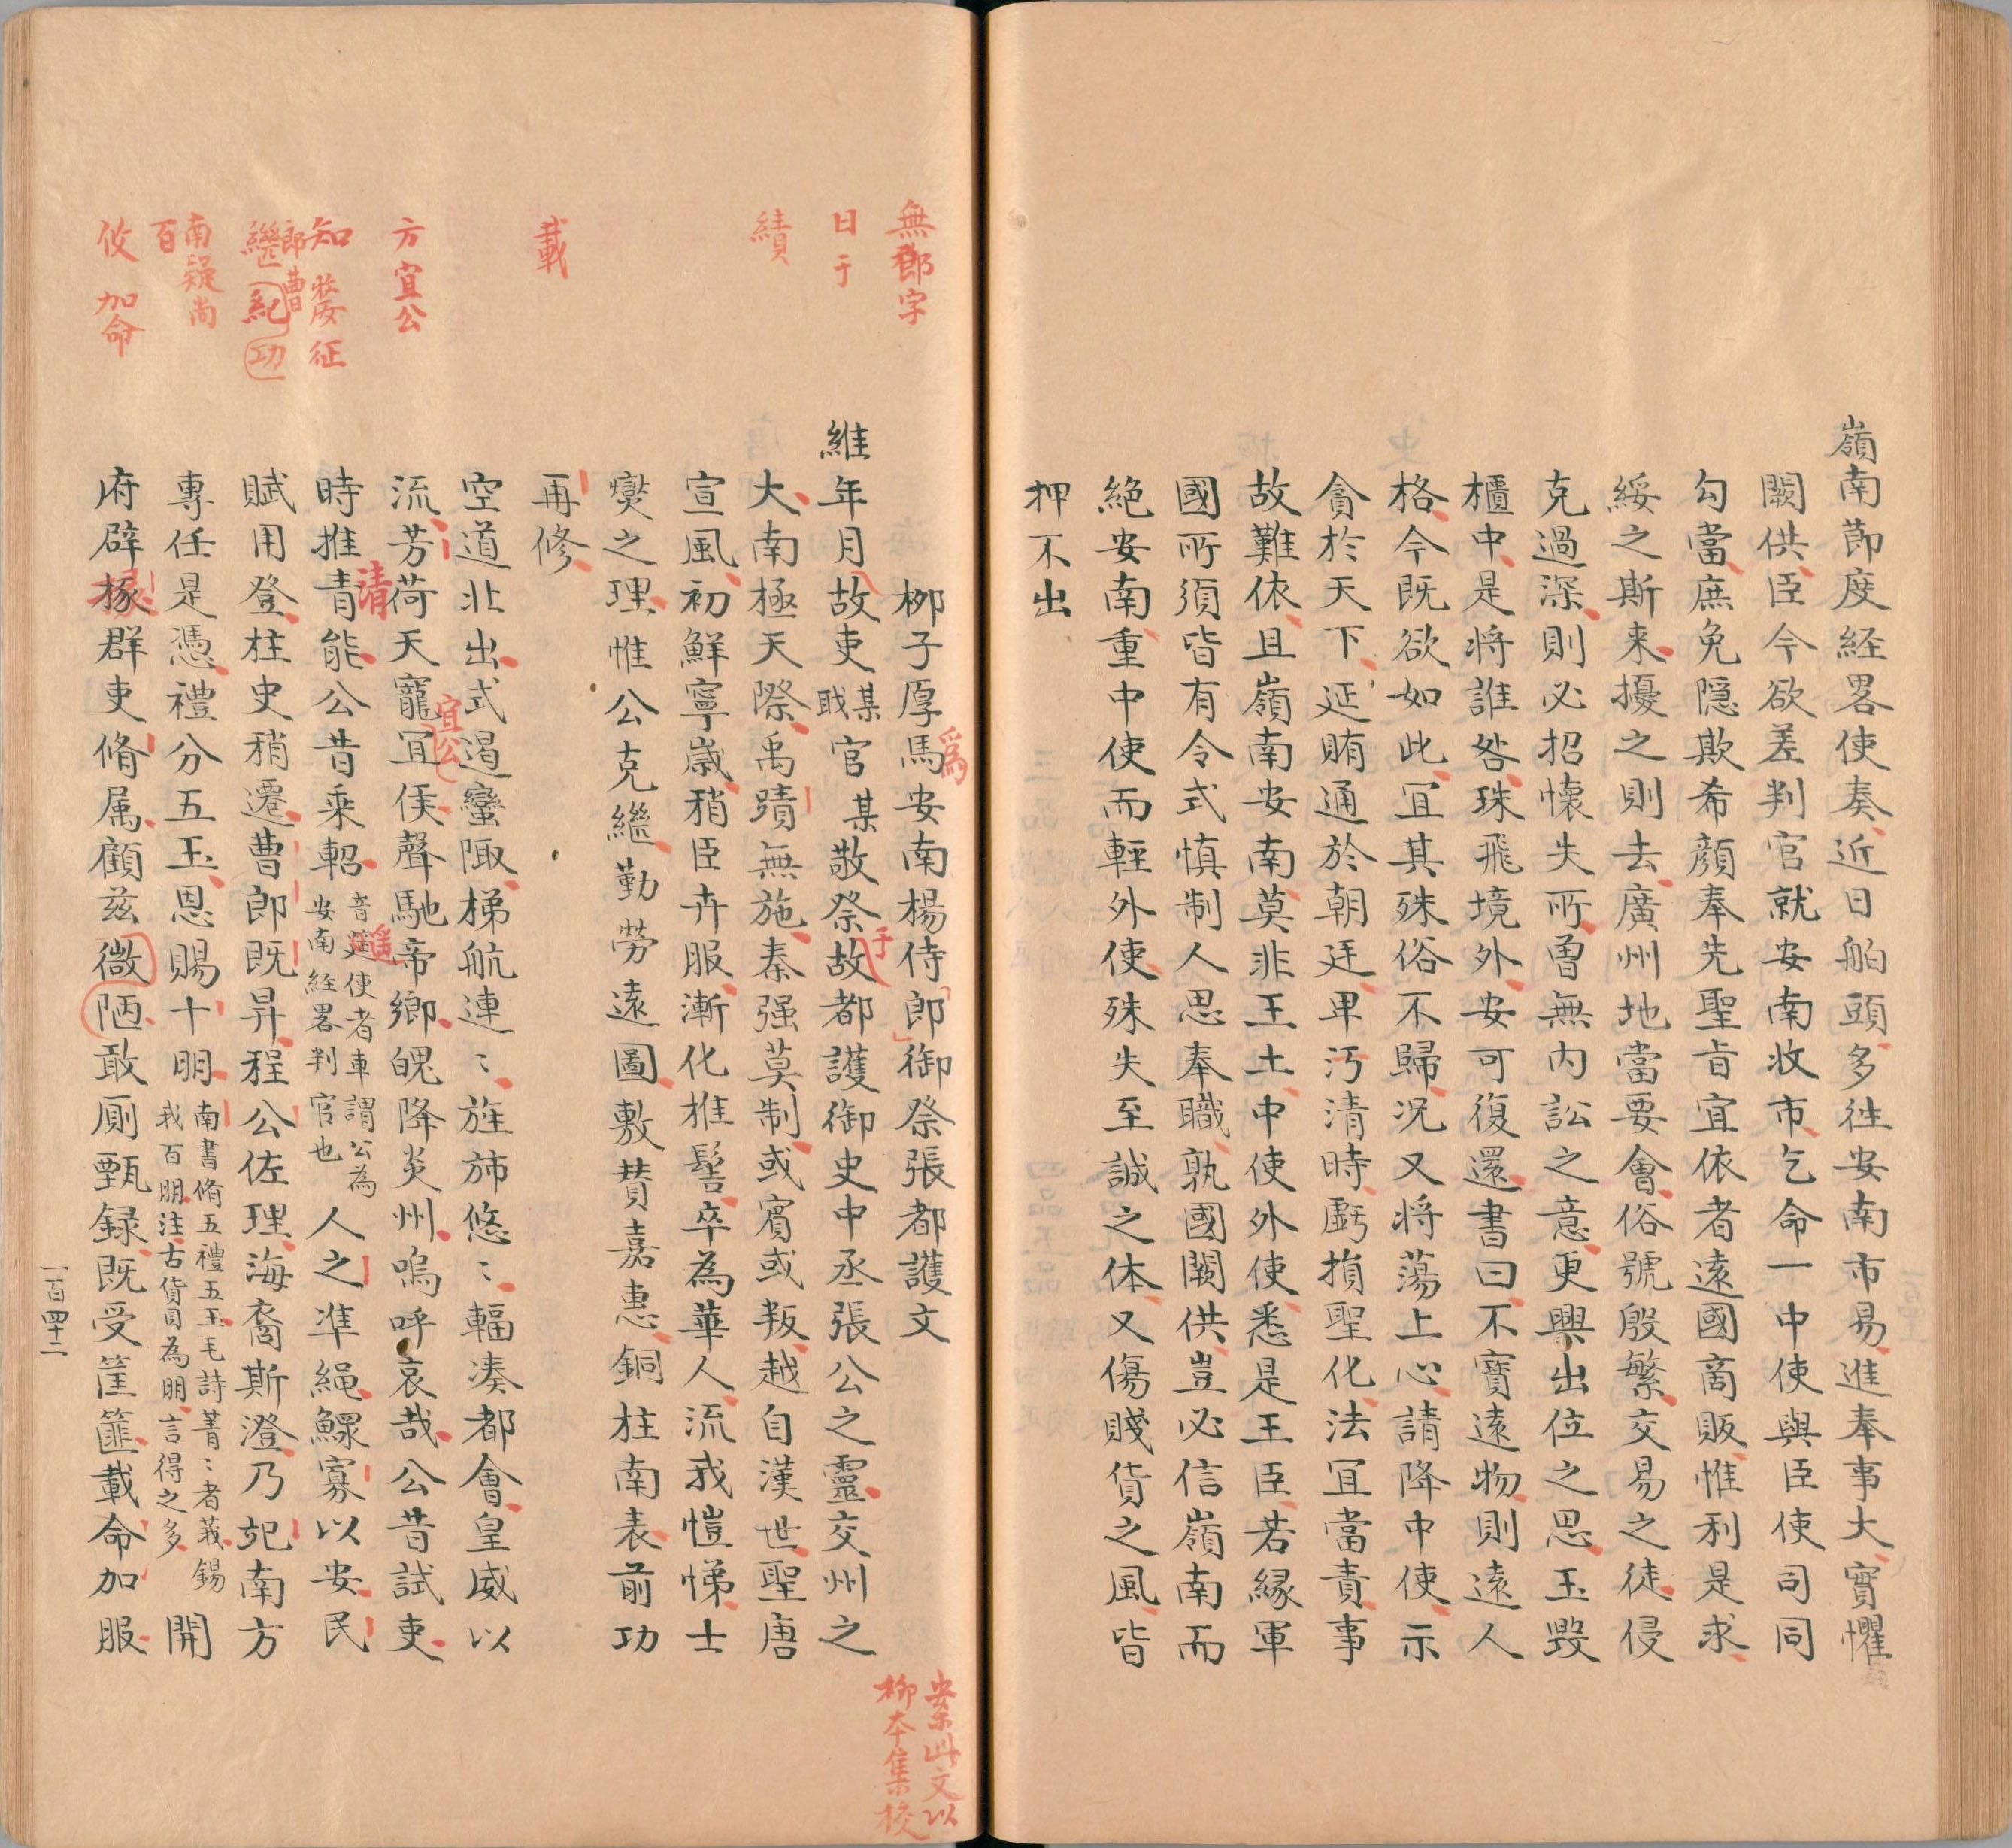 嶺南節度経畧使奏近日舶頭多徃安南市易進奉事大實懼
闕供臣今欲差判官就安南收市乞命一中使與臣使司同
勾當庶免隠欺希顔奉先聖旨宜依者遠國商販惟利是求
綏之斯来擾之則去廣州地當要會俗號殷繁交易之徒侵
克過深則必招懷失所曽無内訟之意更興出位之思玉毀
櫃中是将誰咎珠飛境外安可復還書曰不寶遠物則遠人
格今既欲如此冝其殊俗不歸况又将蕩上心請降中使示
貪於天下延賄通於朝廷卑汚清時虧損聖化法冝當責事
故難依且嶺南安南莫非王土中使外使悉是王臣若縁軍
國所須皆有令式慎制人思奉職孰國闕供豈必信嶺南而
絶安南重中使而輕外使殊失至誠之体又傷賤貨之風皆
押不出
無郎字
爲
柳子厚馬安南楊侍郎御祭張都護文
案此文以
柳本集校
日于
于
維年月故吏某官某敬祭故都護御史中丞張公之靈交州之
戢
績
大南極天際禹蹟無施秦强莫制或賓或叛越自漢世聖唐
宣風初鮮寧歳稍臣卉服漸化推髻卒為華人流我愷悌士
爕之理惟公克繼勤勞遠圖敷賛嘉惠銅柱南表前功
載
再修
空道北出式遏蠻陬梯航連〻旌斾悠〻輻凑都會皇威以
方宜公
宜公
流芳荷天寵冝俟聲馳帝鄉魄降炎州嗚呼哀哉公昔試吏
請
知
征
遥
時推青能公昔乘軺音遥使者車謂公為
安南経畧判官也人之準繩鰥寡以安民
郎曹
繼紀功
賦用登柱史稍遷曹郎既昇程公佐理海裔斯澄乃圯南方
南疑尚
百
專任是憑禮分五玉恩賜十朋南書脩五禮五玉毛詩菁〻者莪錫
我百朋注古貨貝為朋言得之多開
攸加命
府辟掾群吏脩属顧兹㣲陋敢厠甄録既受筐篚載命加服
一百四十二